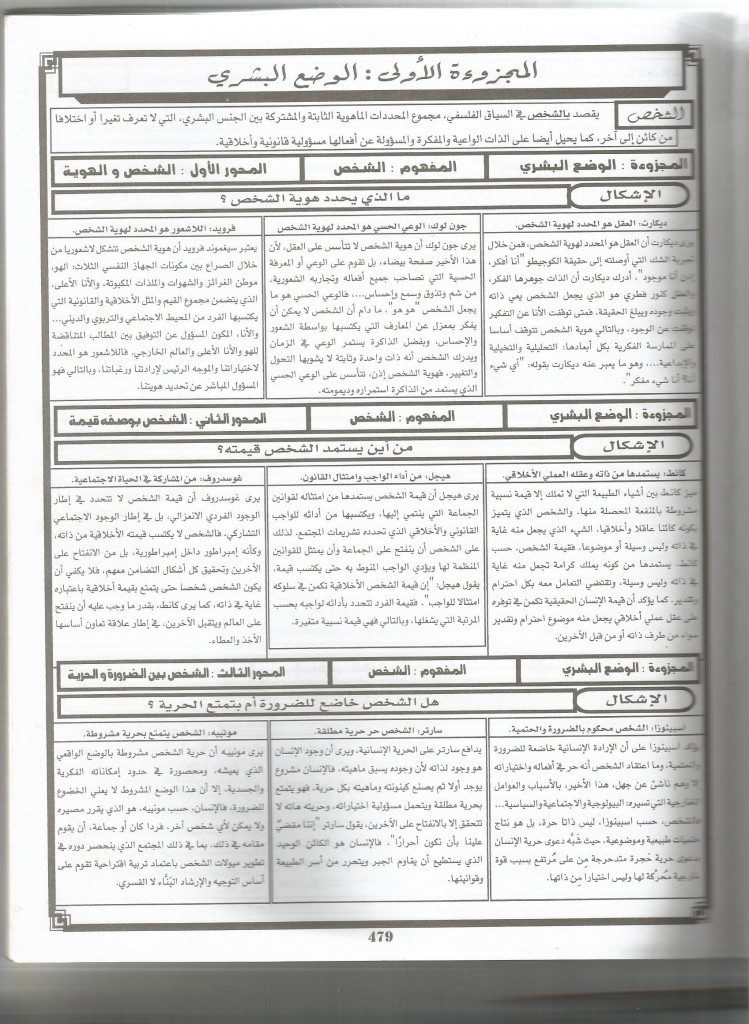 المجزوءة الأولى : الوضع البشري
الشخص
يقصد بالشخص في السياق الفلسفي، مجموع المحددات الماهوية الثابتة والمشتركة بين الجنس البشري، التي لا تعرف تغيرا أو اختلافا
من كائن إلى آخر، كما يحيل أيضا على الذات الواعية والمفكرة والمسؤولة عن أفعالها مسؤولية قانونية وأخلاقية.
المجزوءة : الوضع البشري
المفهوم : الشخص
المحور الأول : الشخص و الهوية
الإشكال
ما الذي يحدد هوية الشخص ؟
ديكارت: العقل هو المحدد لهوية الشخص.
يرى ديكارت أن العقل هو المحدد لهوية الشخص، فمن خلال
تجربة الشك التي أوصلته إلى حقيقة الكوجيطو "أنا أفكر،
إذن أنا موجود"، أدرك ديكارت أن الذات جوهرها الفكر،
والعقل كنور فطري هو الذي يجعل الشخص يعي ذاته
ويثبت وجوده ويبلغ الحقيقة. فمتى توقفت الأنا عن التفكير
توقفت عن الوجود، وبالتالي هوية الشخص تتوقف أساسا
على الممارسة الفكرية بكل أبعادها: التحليلية والتخيلية
والإبداعية....، وهو ما يعبر عنه ديكارت بقوله: "أي شيء
أنا؟ أنا شيء مفكر".
جون لوك: الوعي الحسي هو المحدد لهوية الشخص.
يرى جون لوك أن هوية الشخص لا تتأسس على العقل، لأن
هذا الأخير صفحة بيضاء، بل تقوم على الوعي أو المعرفة
الحسية التي تصاحب جميع أفعاله وتجاربه الشعورية.
من شم وتذوق وسمع وإحساس،.... فالوعي الحسي هو ما
يجعل الشخص "هو هو". ما دام أن الشخص لا يمكن أن
يفكر بمعزل عن المعارف التي يكتسبها بواسطة الشعور
والإحساس، وبفضل الذاكرة يستمر الوعي في الزمان
ويدرك الشخص أنه ذات واحدة وثابتة لا يشوبها التحول
والتغيير، فهوية الشخص إذن، تتأسس على الوعي الحسي
الذي يستمد من الذاكرة استمراره وديمومته.
فرويد: اللاشعور هو المحدد لهوية الشخص.
يعتبر سيغموند فرويد أن هوية الشخص تتشكل لاشعوريا من
خلال الصراع بين مكونات الجهاز النفسي الثلاث: الهو،
موطن الغرائز والشهوات والملذات المكبوتة، والأنا الأعلى،
الذي يتضمن مجموع القيم والمثل الأخلاقية والقانونية التي
يكتسبها الفرد من المحيط الاجتماعي والتربوي والديني...
والأنا، المكون المسؤول عن التوفيق بين المطالب المتناقضة
للهو والأنا الأعلى والعالم الخارجي. فاللاشعور هو المحدد
لاختياراتنا والموجه الرئيس لإرادتنا ورغباتنا، وبالتالي فهو
المسؤول المباشر عن تحديد هويتنا.
المجزوءة : الوضع البشري
المفهوم : الشخص
المحور الثاني : الشخص بوصفه قيمة
الإشكال
من أين يستمد الشخص قيمته؟
كانط: يستمدها من ذاته وعقله العملي الأخلاقي.
ميز كانط بين أشياء الطبيعة التي لا تملك إلا قيمة نسبية
مشروطة بالمنفعة المحصلة منها، والشخص الذي يتميز
بكونه كائنا عاقلا وأخلاقيا، الشيء الذي يجعل منه غاية
في ذاته وليس وسيلة أو موضوعا. فقيمة الشخص، حسب
كانط، يستمدها من كونه يملك كرامة تجعل منه غاية
في ذاته وليس وسيلة، وتقتضي التعامل معه بكل احترام
وتقدير. كما يؤكد أن قيمة الإنسان الحقيقية تكمن في توفره
على عقل عملي أخلاقي يجعل منه موضوع احترام وتقدير
سواء من طرف ذاته أو من قبل الآخرين.
هيجل: من أداء الواجب وامتثال القانون.
يرى هيجل أن قيمة الشخص يستمدها من امتثاله لقوانين
الجماعة التي ينتمي إليها، ويكتسبها من أدائه للواجب
القانوني والأخلاقي الذي تحدده تشريعات المجتمع. لذلك
على الشخص أن ينفتح على الجماعة وأن يمتثل للقوانين
المنظمة لها ويؤدي الواجب المنوط به حتى يكتسب قيمة.
يقول هيجل: "إن قيمة الشخص الأخلاقية تكمن في سلوكه
امتثالا للواجب". فقيمة الفرد تتحدد بأدائه لواجبه بحسب
المرتبة التي يشغلها، وبالتالي فهي قيمة نسبية متغيرة.
غوسدروف: من المشاركة في الحياة الاجتماعية.
يرى غوسدروف أن قيمة الشخص لا تتحدد في إطار
الوجود الفردي الانعزالي، بل في إطار الوجود الاجتماعي
التشاركي، فالشخص لا يكتسب قيمته الأخلاقية من ذاته،
وكأنه إمبراطور داخل إمبراطورية، بل من الانفتاح على
الآخرين وتحقيق كل أشكال التضامن معهم. فلا يكفي أن
يكون الشخص شخصا حتى يتمتع بقيمة أخلاقية باعتباره
غاية في ذاته، كما يرى كانط، بقدر ما وجب عليه أن ينفتح
على العالم ويتقبل الآخرين، في إطار علاقة تعاون أساسها
الأخذ والعطاء.
المجزوءة : الوضع البشري
المفهوم : الشخص
المحور الثالث : الشخص بين الضرورة و الحرية
الإشكال
هل الشخص خاضع للضرورة أم يتمتع الحرية ؟
اسبينوزا: الشخص محكوم بالضرورة والحتمية.
يؤكد اسبينوزا على أن الإرادة الإنسانية خاضعة للضرورة
والحتمية، وما اعتقاد الشخص أنه حر في أفعاله واختياراته
إلا وهم ناشئ عن جهل، هذا الأخير، بالأسباب والعوامل
الخارجية التي تسيره: البيولوجية والاجتماعية والسياسية...
فالشخص، حسب اسبينوزا، ليس ذاتا حرة، بل هو نتاج
حتميات طبيعية وموضوعية، حيث شبَّه دعوى حرية الإنسان
بدعوى حرية حجرة متدحرجة من على مُرتفع بسبب قوة
خارجية مُحرِّكة لها وليس اختيارا مِن ذاتها.
سارتر: الشخص حر حرية مطلقة.
يدافع سارتر على الحرية الإنسانية، ويرى أن وجود الإنسان
هو وجود لذاته لأن وجوده يسبق ماهيته. فالإنسان مشروع
يوجد أولا ثم يصنع كينونته وماهيته بكل حرية. فهو يتمتع
بحرية مطلقة ويتحمل مسؤولية اختياراته، وحريته هاته لا
تتحقق إلا بالانفتاح على الآخرين، يقول سارتر "إننا مقضيٌّ
علينا بأن نكون أحرارًا". فالإنسان هو الكائن الوحيد
الذي يستطيع أن يقاوم الجبر ويتحرر من أسر الطبيعة
وقوانينها.
مونييه: الشخص يتمتع بحرية مشروطة.
يرى مونييه أن حرية الشخص مشروطة بالوضع الواقعي
الذي يعيشه، ومحصورة في حدود إمكاناته الفكرية
والجسدية، إلا أن هذا الوضع المشروط لا يعني الخضوع
للضرورة، فالإنسان، حسب مونييه، هو الذي يقرر مصيره
ولا يمكن لأي شخص آخر، فردا كان أو جماعة، أن يقوم
مقامه في ذلك. بما في ذلك المجتمع الذي ينحصر دوره في
تطوير ميولات الشخص باعتماد تربية اقتراحية تقوم على
أساس التوجيه والإرشاد البَنَّاء لا القسري.
479